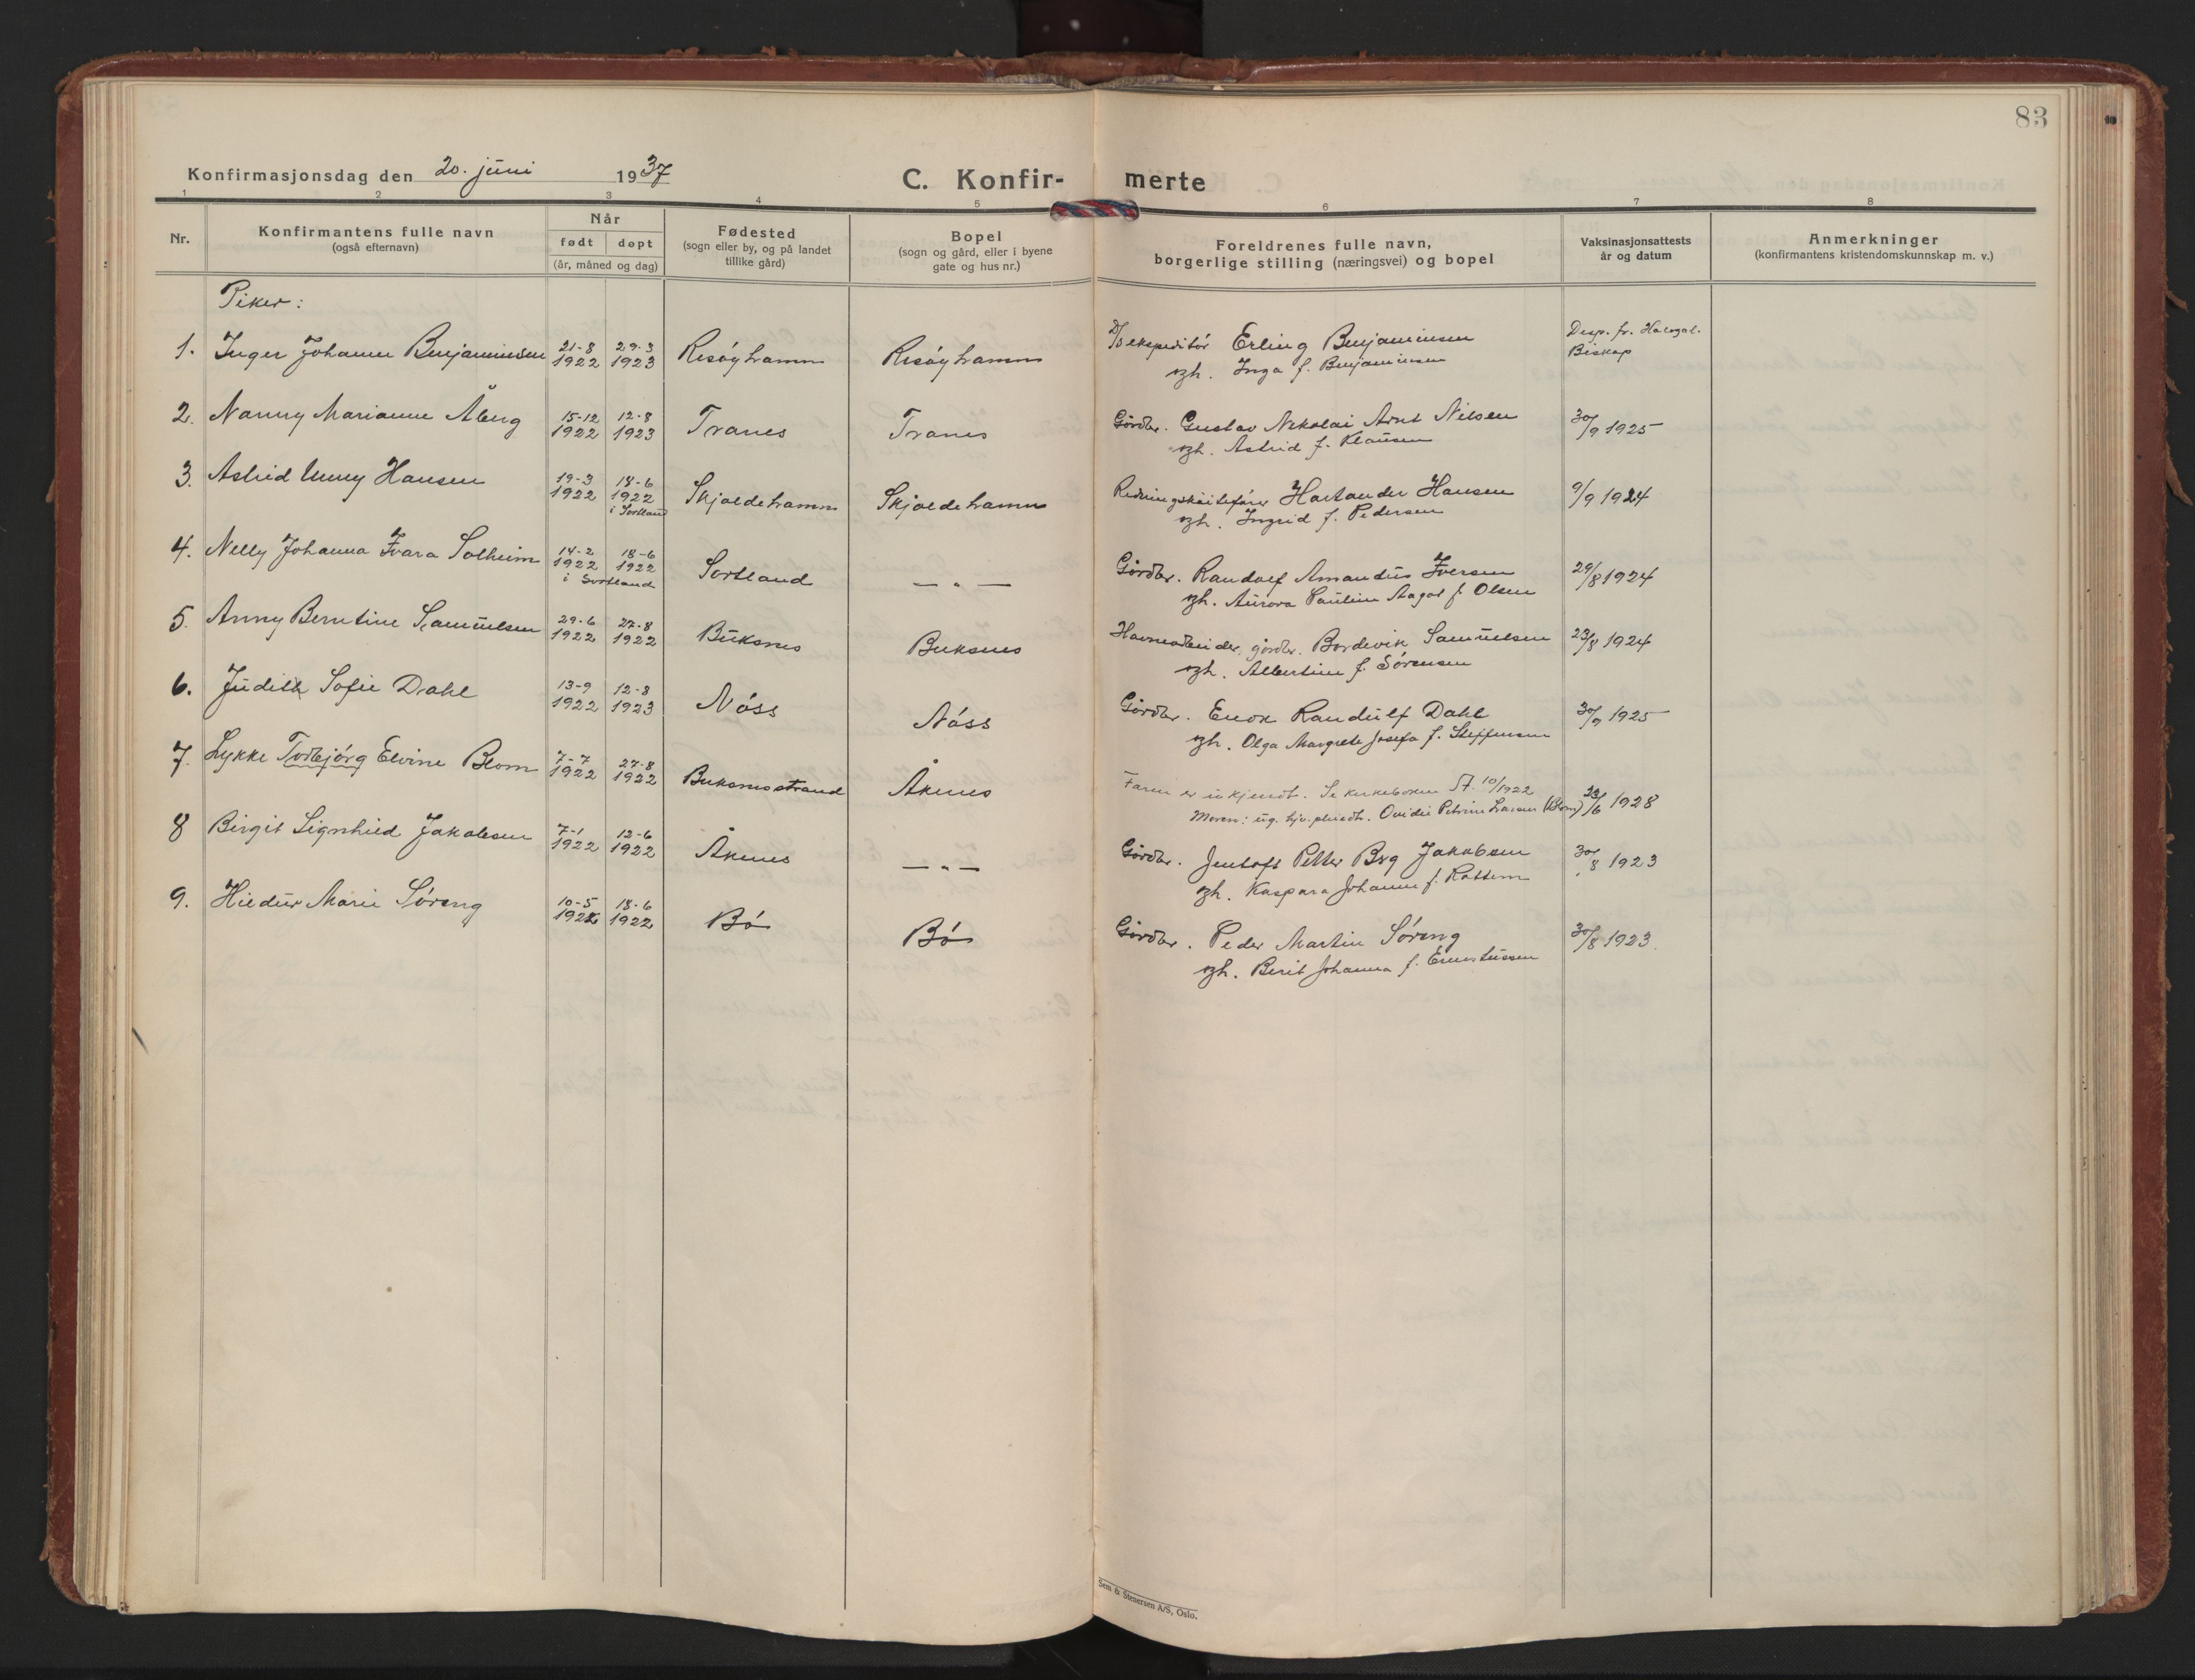 83
Konfirmasjonsdag den 20. juni 1937
C. Konfir- merte
1 2 3 4 5 6 7 8
Nr.
Konfirmantens fulle navn
(også efternavn)
Når
født døpt
(år, måned og dag)
Fødested
(sogn eller by, og på landet
tillike gård)
Bopel
(sogn og gård, eller i byene
gate og hus nr.)
Foreldrenes fulle navn,
borgerlige stilling (næringsvei) og bopel
Vaksinasjonsattests
år og datum
Anmerkninger
(konfirmantens kristendomskunnskap m. v.)
Piker:
1. Inger Johanne Benjaminsen 21-8 1922 29-3 1923 Risøyhamn Risøyhamn D/S ekspeditör Erling Benjaminsen Desp. fr. Halogal. Biskop
og h. Inga f. Benjaminsen
2. Nanny Marianne Åberg 15-12 1922 12-8 1923 Tranes Tranes Gårdbr. Gustav Nikolai Arnt Nilsen 30/9 1925
og h. Astrid f. Klausen
3. Astrid Unny Hansen 19-3 1922 18-6 1922 i Sortland Skjoldehamn Skjoldehamn Redningsskøitefører Hartander Hansen 9/9 1924
og h. Ingrid f. Pedersen
4. Nelly Johanna Ivara Solheim 14-2 1922 18-6 1922 i Sortland Sortland — " — Gårdbr. Randolf Amandus Iversen 29/8 1924
og h. Aurora Pauline Aagot f. Olsen
5. Anny Berntine Samuelsen 29-6 1922 27-8 1922 Buksnes Buksnes Havnearbeider, gårdbr. Bordevik Samuelsen 23/8 1924
og h. Albertine f. Sørensen
6. Judith Sofie Dahl 13-9 1922 12-8 1923 Nöss Nöss Gårdbr. Enok Randulf Dahl 30/9 1925
og h. Olga Margrete Josefa f. Steffensen
7. Lykke Torbjørg Elvine Blom 7-7 1922 27-8 1922 Buksnesstrand Åknes Faren er ukjendt. Se kirkeboken 57. 10/1922 23/6 1928
Moren: ug. hjv. pliedt. Ovidie Petrine Larsen (Blom)
8 Birgit Signhild Jakobsen 7-1 1922 12-6 1922 Åknes — " — Gårdbr. Jentoft Petter Brg Jakobsen 30/8 1923
og h. Kaspara Johanne f. Rottem
9. Hildur Marie Søreng 10-5 1922 18-6 1922 Bö Bö Gårdbr. Peder Martin Søreng 30/8 1923.
og h. Berit Johanna f. Ernstussen
Sem & Stenersen A/S, Oslo.